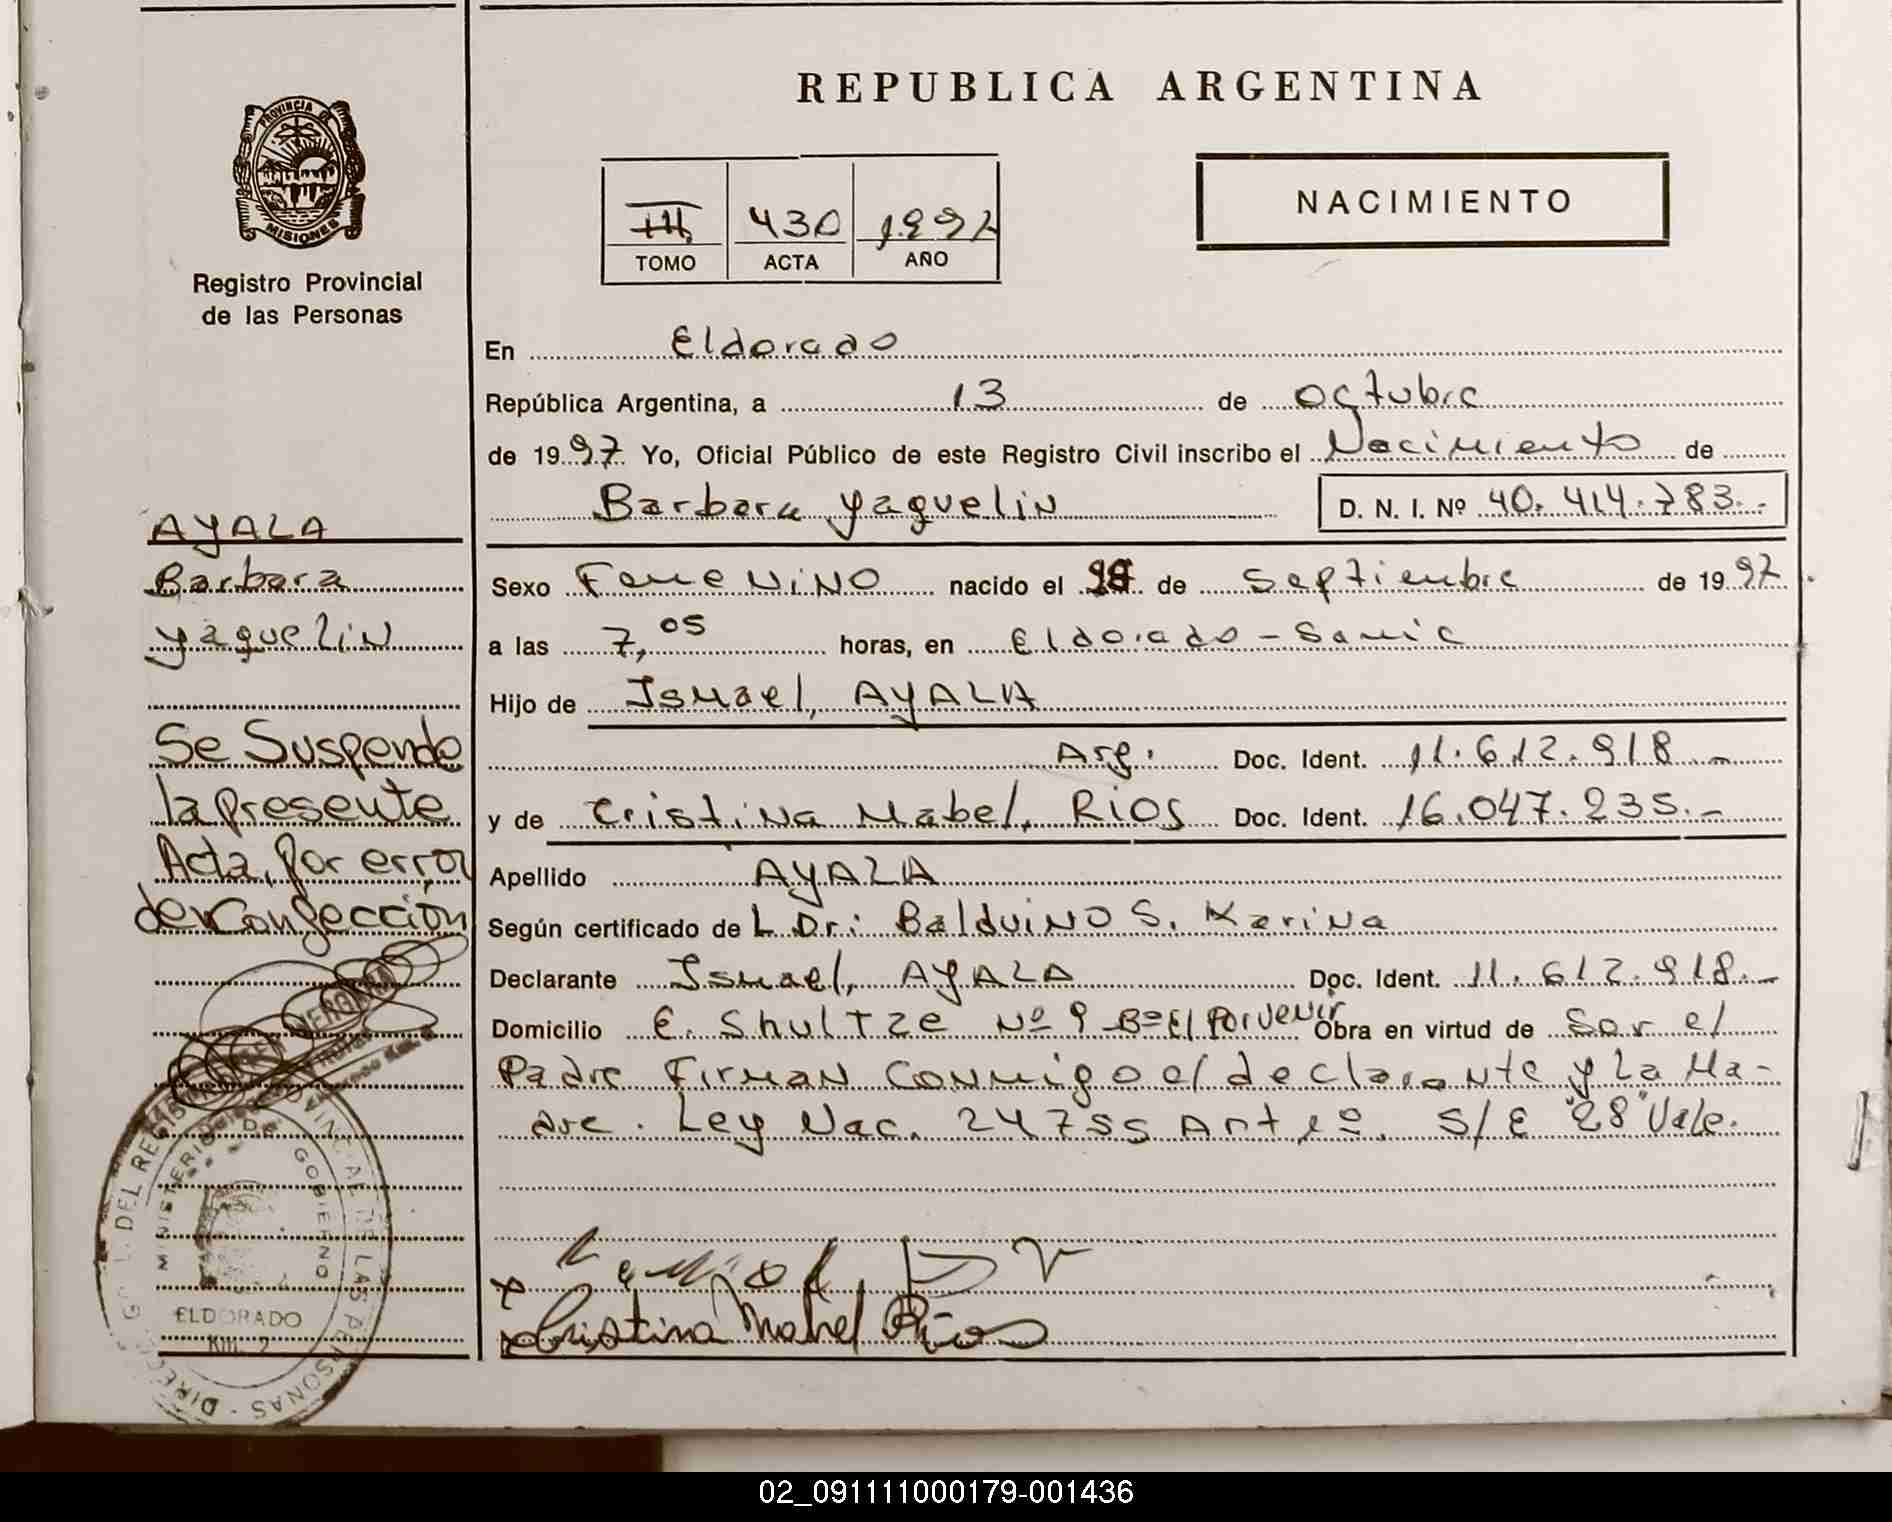 REPUBLICA ARGENTINA
PROVINCIA DE
MISIONES
Registro Provincial
de las Personas
III 430 1997
TOMO ACTA AÑO
NACIMIENTO
En Eldorado
República Argentina, a 13 de octubre
de 1997 Yo, Oficial Público de este Registro Civil inscribo el Nacimiento de
Barbara yaquelin D. N. I. Nº 40.414.783.-
AYALA
Barbara
yaquelin
Se Suspende
la presente
Acta, por error
de Confección
Sexo Femenino nacido el de Septiembre de 1997
a las 7,05 horas, en Eldorado - Samic
Hijo de Ismael, AYALA
Arg. Doc. Ident. 11.612.918.-
y de Cristina Mabel, RIOS Doc. Ident. 16.047.235.-
Apellido AYALA
Según certificado de L Dr: Balduino S. Karina
Declarante Ismael, AYALA Doc. Ident. 11.612.918.-
Domicilio E. Shultze Nº 9 - Bº El Porvenir Obra en virtud de Ser el
Padre Firman Conmigo el declarante y La Ma-
dre. Ley Nac. 24755 Art 1º. S/E "28" Vale.
Cristina Mabel Rios
DEL REGISTRO PROVINCIAL DE LAS PERSONAS
MINISTERIO DE GOBIERNO
ELDORADO
Km. 2
02_091111000179-001436